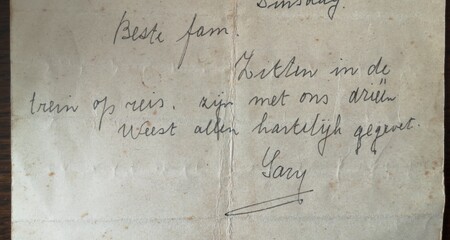 Dinsdag.
Beste fam.
Zitten in de
trein op reis. zijn met ons drieën
Weest allen hartelijk gegroet.
Sary